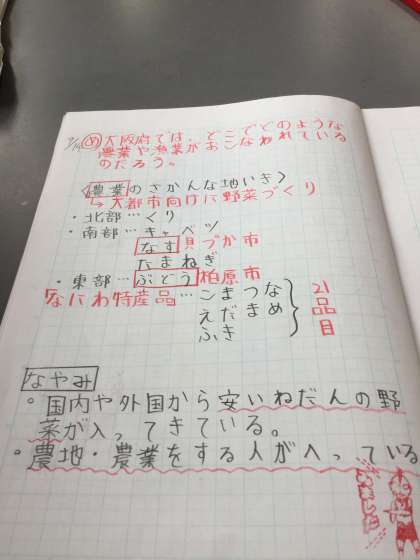 め 大阪府では、どこでどのような
農業や漁業がおこなわれている
のだろう。
〈農業のさかんな地いき〉
→大都市向けに野菜づくり
・北部…くり
・南部…キャベツ
なす 貝づか市
たまねぎ
・東部…ぶどう 柏原市
「なにわ特産品」…こまつな
えだまめ
ふき
21品目
なやみ
○国内や外国から安いねだんの野
菜が入ってきている。
・農地・農業をする人がへっている